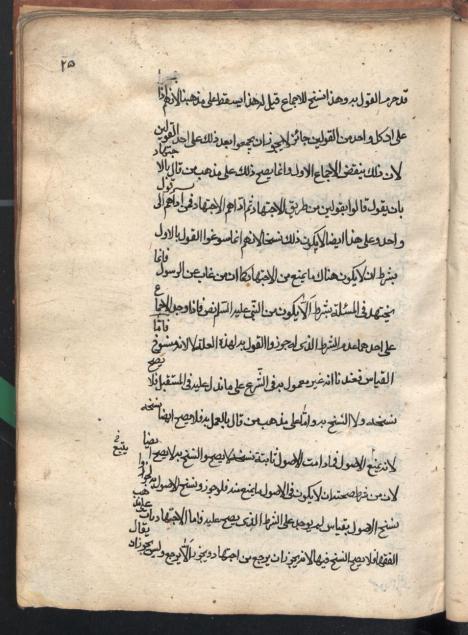 ٢٥
قد حرم القول به وهذا نسخ للاجماع قيل له هذا يسقط على مذهبنا لانهم اذا
على ان كل واحد من القولين جائز لا يجوز ان يجمعوا بعد ذلك على احد القولين
لان ذلك ينقض الاجماع الاول وانما يصح ذلك على مذهب من قال بالاجتهاد
بان يقول قالوا بقولين من طريق الاجتهاد ثم اداهم الاجتهاد الى قول
واحد وعلى هذا ايضا لا يكون ذلك نسخا لانهم انما سوغوا القول بالاول
بشرط ان لا يكون هناك ما يمنع من الاجتهاد كما ان من غاب عن الرسول فانما
يجتهد في المسئلة بشرط ان لا يكون من النبي عليه السلم نص فاذا وجد الاجماع
على احدهما عدم الشرط الذي له جوزوا القول به لهذه العلة لا لانه منسوخ فاما
القياس فعندنا انه غير معمول به في الشرع على ما ندل عليه في المستقبل فلا يصح
نسخه ولا النسخ به واما على مذهب من قال بالعمل به فلا يصح ايضا نسخه
لانه يتبع الاصول فما دامت الاصول ثابتة نسخه لا يصح والنسخ به لا يصح ايضا
لان من شرط صحته ان لا يكون في الاصول ما يمنع منه فلو جوزوا نسخ الاصول به
نسخ الاصول بقياس لم يوجد على الشرط الذي يصح عليه فاما الاجتهاديات
الفقهاء فلا يصح النسخ فيها لانه يجوز ان يرجع من اجتهاد ويجوز ان لا يرجع وليس يجوز ان يقال